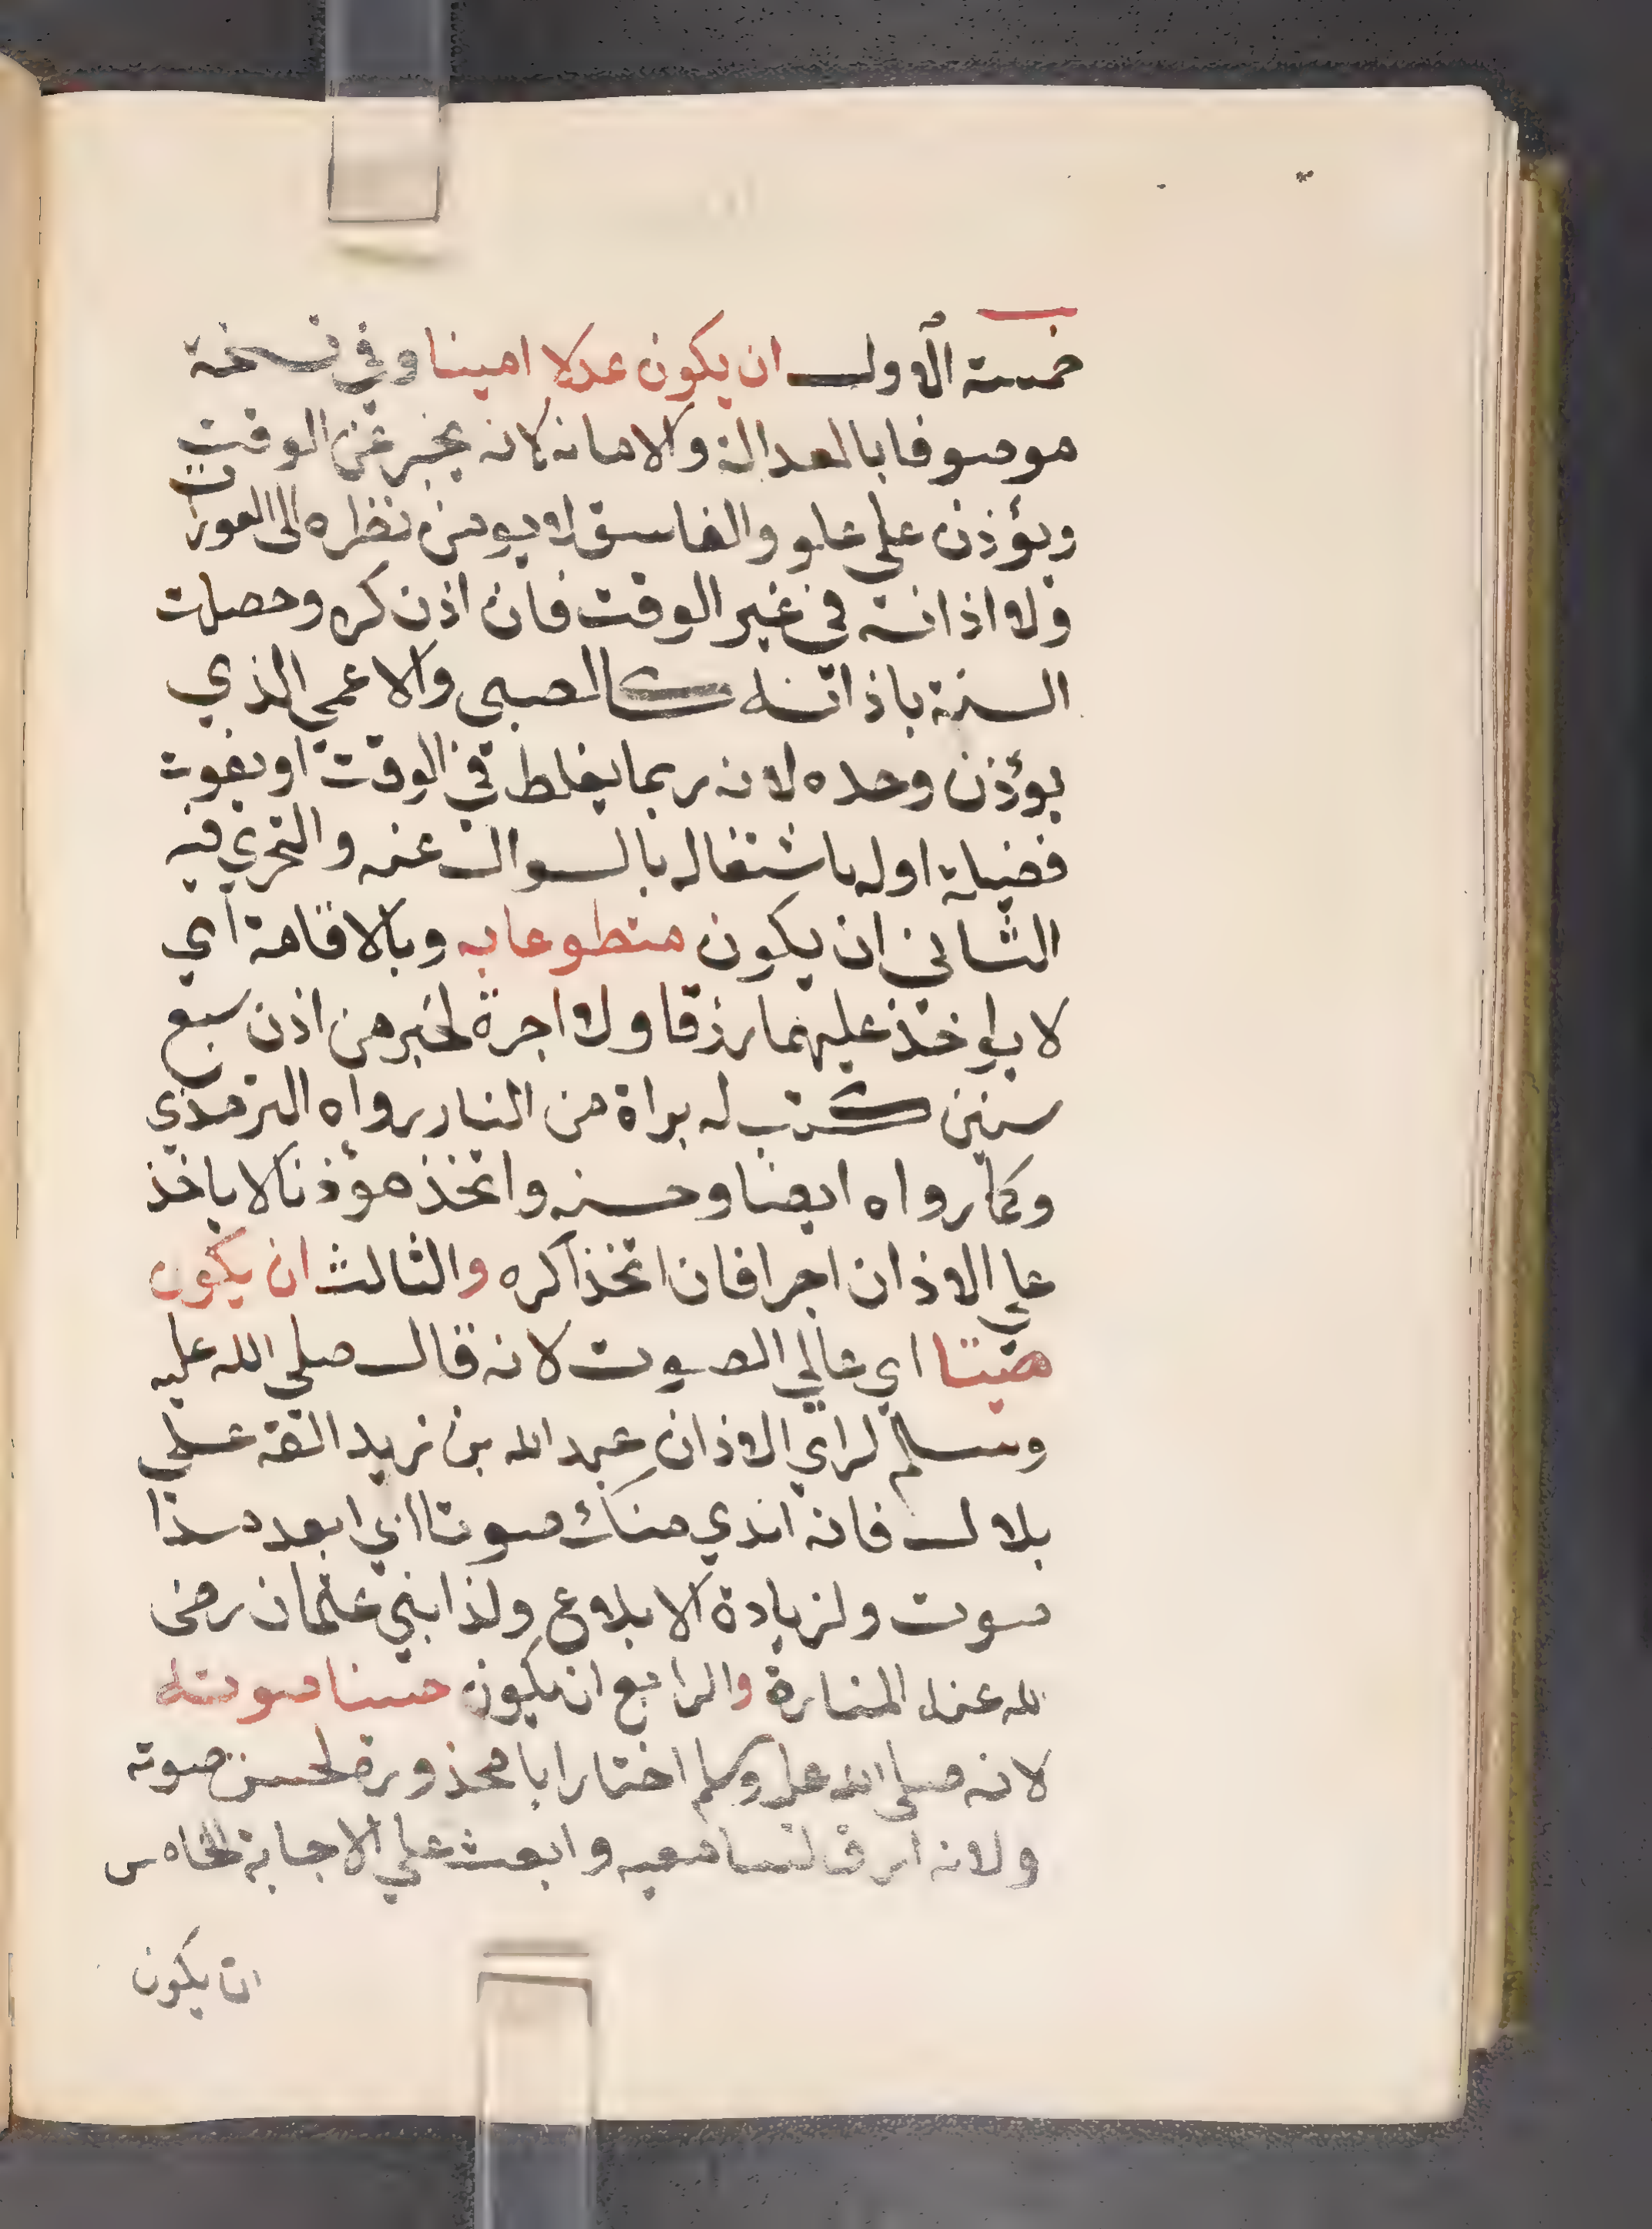 خمسة الاول ان يكون عدلا امينا وفي نسخة
موصوفا بالعدالة والامانه لانه يخبر عن الوقت
ويؤذن علي علو والفاسق لا يومن نظره الى العورات
ولا اذانه في غير الوقت فان اذن كره وحصلت
السنة باذانه كالصبي والاعمي الذي
يؤذن وحده لانه ربما يغلط في الوقت او يفوت
فضيلة اوله باشتغاله بالسوال عنه والتحري فيه
الثاني ان يكون متطوعا به وبالاقامة اي
لا ياخذ عليهما رزقا ولا اجرة لخبر من اذن سبع
سنين كتب له براة من النار رواه الترمذي
وكما رواه ايضا وحسنه واتخذ مؤذنا لا ياخذ
علي الاذان اجرا فان اتخذ كره والثالث ان يكون
صيتا اي عالي الصوت لانه قال صلي الله عليه
وسلم لراي الاذان عبد الله بن زيد القه علي
بلال فانه اندي منك صوتا اي ابعد مدا
صوت ولزيادة الابلاغ ولذا بني عثمان رضى
لله عنه المنارة والرابع ان يكون حسنا صوته
لانه صلى الله عليه وسلم اختار ابا محذورة لحسن صوته
ولانه ارق لسامعيه وابعث علي الاجابة الخامس
ان يكون